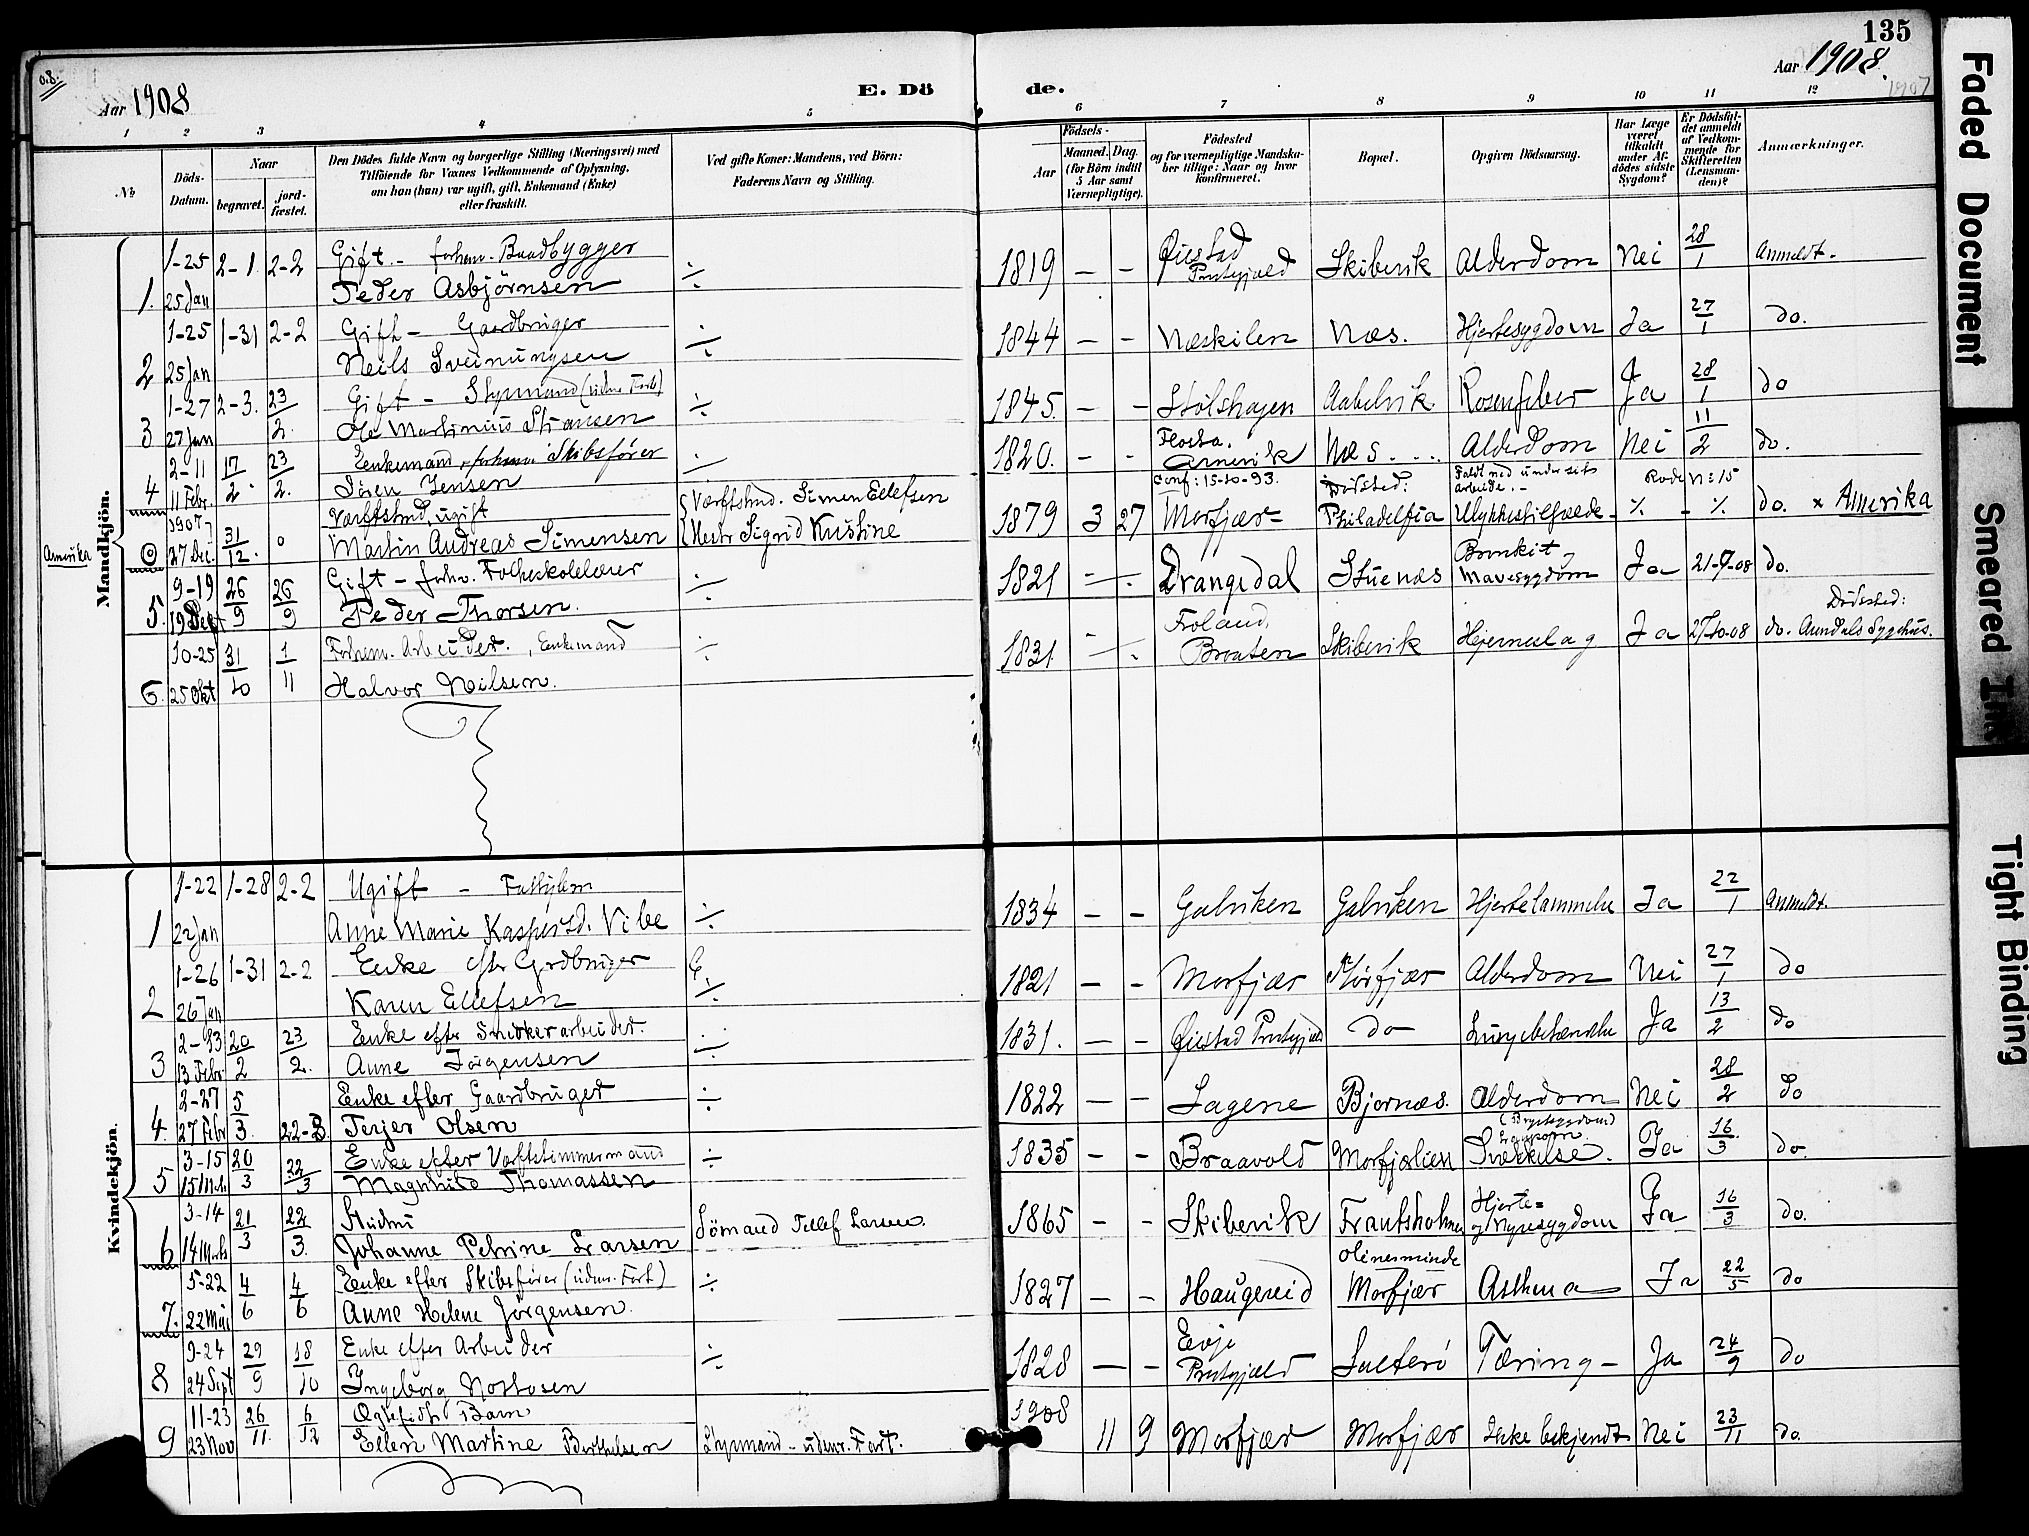 135
o.8.
Aar 1908
E. Dö
de.
Aar 1908.
1907
1 2 3 4 5 6 7 8 9 10 11 12
No
Döds-Datum.
Naar
begravet.
jord-fæstet.
Den Dödes fulde Navn og borgerlige Stilling (Næringsvei) med
Tilföiende for Voxnes Vedkommende af Oplysning,
om han (hun) var ugift, gift, Enkemand (Enke)
eller fraskilt.
Ved gifte Koner: Mandens, ved Börn:
Faderens Navn og Stilling.
Födsels-
Aar
Maaned. Dag.
(for Börn indtil
5 Aar samt
Værnepligtige).
Födested
og for værnepligtige Mandska-
ber tillige: Naar og hvor
konfirmeret.
Bopæl.
Opgiven Dödsaarsag.
Har Læge
været
tilkaldt
under Af-
dödes sidste
Sygdom?
Er Dödsfal-
det anmeldt
af Vedkom-
mende for
Skifteretten
(Lensman-
den)?
Anmærkninger.
Mandkjön.
1-25 2-1 2-2 Gift - forhenv. Baadbygger
1. 25 Jan Peder Asbjörnsen ÷ 1819 — — Øiestad Prestegjæld Skibevik Alderdom Nei 28/1 Anmeldt.
1-25 1-31 2-2 Gift - Gaardbruger
2 25 Jan Neils Sveinungsen ÷ 1844 — — Næskilen Næs. Hjertesygdom Ja 27/1 do.
1-27 2-3. 23/2. Gift - Styrmand (udenr. Fart)
3 27 Jan Ole Martinius ÷ 1845. — — Stölshagen Rosenfeber Ja 28/1 do
2-11 17/2 23/2. Enkemand, forhenv. Skibsförer
4 11 Febr. Sören Jensen ÷ 1820. — — Flosta. Arnevik Næs Alderdom Nei 11/2 do.
Amerika
1907 Værftsmd, ugift
27 Dec. 31/12. o Martin Andreas Simensen
Værftsmd. Simen Ellefsen
Hustr Sigrid Kristine
1879 3 27 Conf: 15-10-93. Morfjær Dödsted: Philadelfia Faldt ned under sit arbeide. - Ulykkestilfælde - Rode N: 15 % - % do. x Amerika
9-19 26/9 26/9 Gift - forhv. Folkeskolelærer
5. 19 Sept Peder Thorsen. ÷ 1821 Drangedal Stuenæs Bronkit, Mavesygdom Ja 21-9-08 do.
10-25 31/10 1/11 Forhenv. Arbeider, Enkemand
6. 25 Okt Halvor Neilsen. ÷ 1831. Froland, Braaten Skibevik Hjerneslag Ja 27-10-08 do. Dödssted: Arendals Sygehus.
Kvindekjön.
1-22 1-28 2-2 Ugift - Fattiglem
1 22 Jan Anne Marie Kaspersd. Vibe ÷ 1834 — — Galviken Galviken Hjertelammelse Ja 22/1 Anmeldt.
1-26 1-31 2-2 Enke efter Grdbruger
2 26 Jan Karen Ellefsen ÷ 1821 — — Morfjær Morfjær Alderdom Nei 27/1 do
2-13 20/2 23/2. Enke efter Snedkerarbeider.
3 13 Febr Anne Jörgensen ÷ 1831. — — Øiestad Prestegjæld do Lungebetændelse Ja 13/2 do
2-27 5/3. 22-3. Enke efter Gaardbruger
4. 27 Febr Terjer Olsen ÷ 1822 — — Lagene Bjornæs. Alderdom Nei 28/2 do
3-15 20/3 22/3 Enke efter Værftstimmermand
5 15 Mrts Magnhild Thomassen ÷ 1835 — — Braavold Morfjærlien (Brystsygdom) Svækkelse. Ja 16/3 do.
3-14 21/3 22/3. Hustru
6 14 Mrts Johanne Petrine Larsen Sömand Tellef Larsen. 1865 — — Skibevik Frantsholmen Hjerte= og Nyresygdom Ja 16/3 do.
5-22 4/6 4/6 Enke efter Skibsförer (udenr. Fart)
7. 22 Mai Anne Helene Jörgensen. ÷ 1827 — — Haugereid Olinerminde Morfjær Asthma Ja 22/5 do
9-24 29/9 18/10 Enke efter Arbeider
8 24 Sept Ingeborg ÷ 1828 — — Evje Prestegjæld Salterö Tæring - Ja 24/9 do
11-23 26/11. 6/12 Ægtefödt Barn
9 23 Nov Ellen Martine Berthelsen Styrmand - udenr. Fart. 1908 11 9 Morfjær Morfjær Ikke bekjendt Nei 23/11 do.
Faded Document
Smeared Ink
Tight Binding